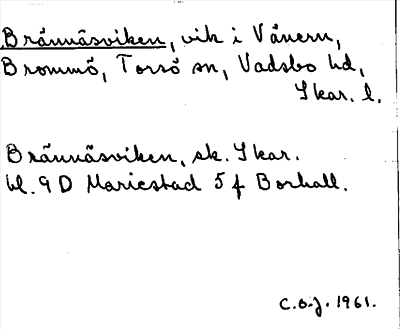 Brännäsviken, vik i Vänern,
Brommö, Torsö sn, Vadsbo hd,
Skar. l.
Brännäsviken, sk. Skar.
bl. 9 D Mariestad 5 f Borhall.
C.O.J. 1961.